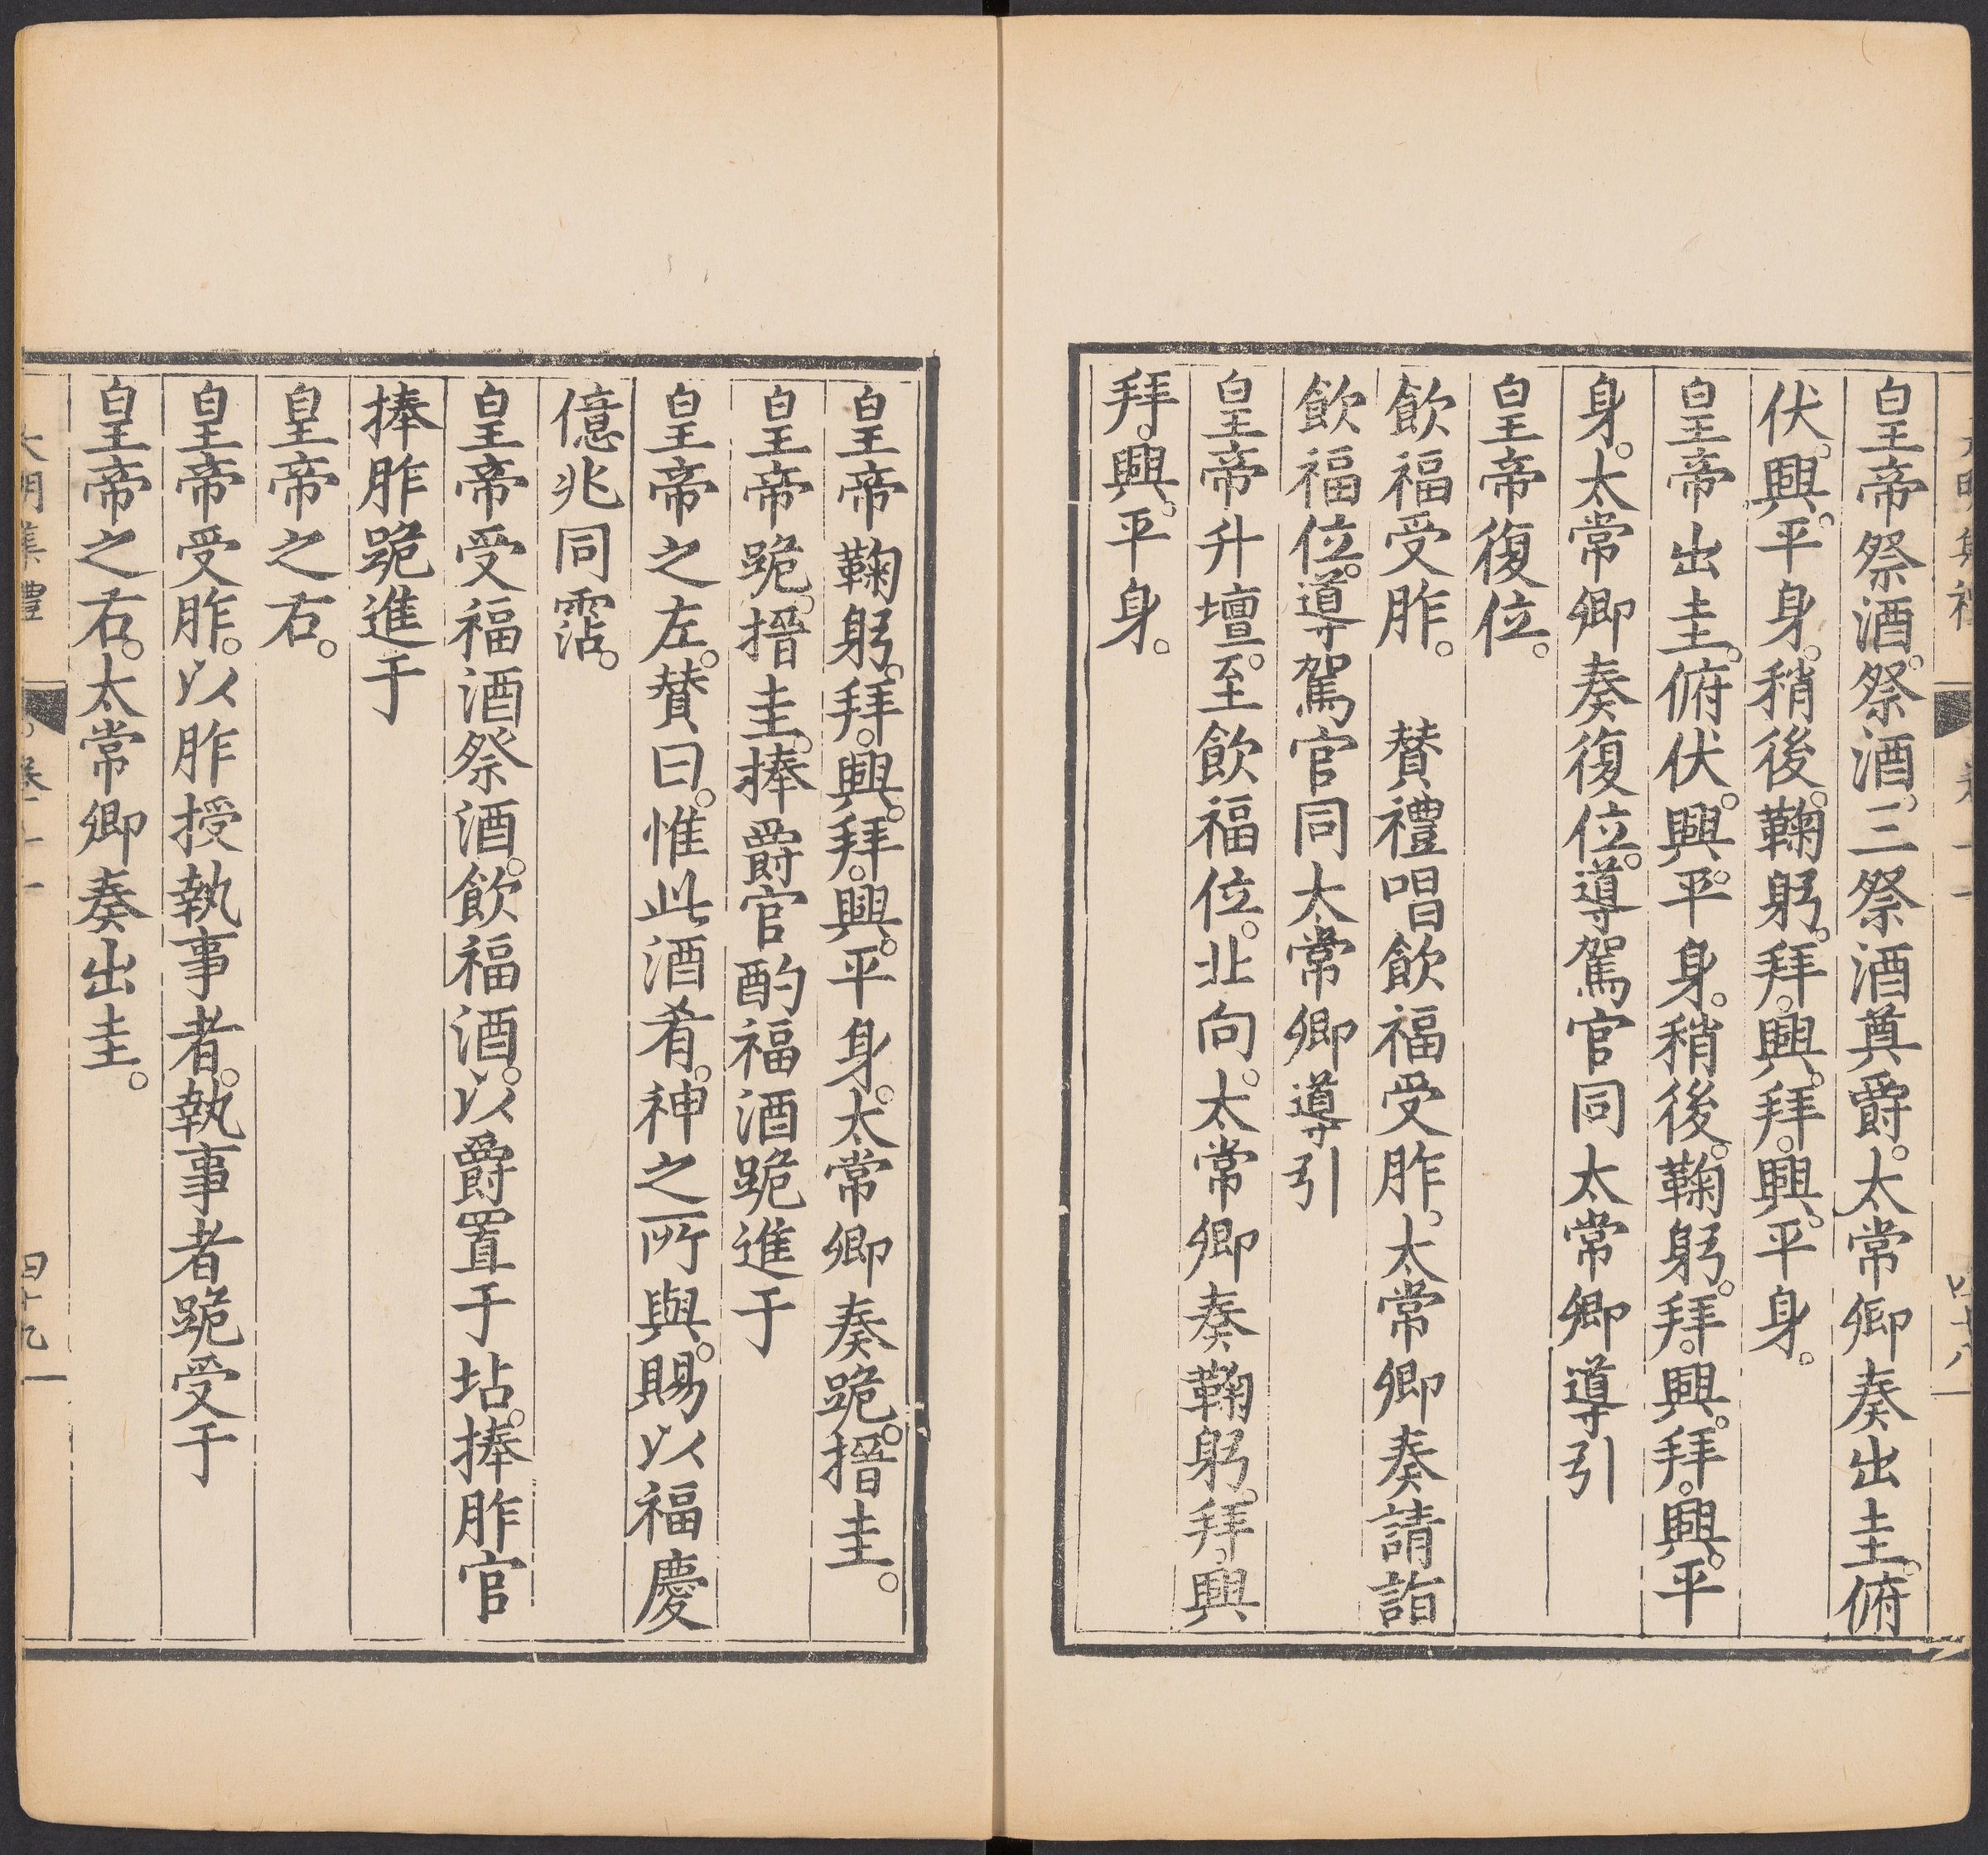 皇帝祭酒。祭酒。三祭酒奠爵。太常卿奏出圭。俯
伏。興。平身。稍後。鞠躬。拜。興。拜。興。平身。
皇帝出圭。俯伏。興。平身。稍後。鞠躬。拜。興。拜。興。平
身。太常卿奏復位。導駕官同太常卿導引
皇帝復位。
飲福受胙。　賛禮唱飲福受胙。太常卿奏請詣
飲福位。導駕官同太常卿導引
皇帝升壇。至飲福位。北向。太常卿奏鞠躬。拜。興
拜。興。平身。
皇帝鞠躬。拜。興。拜。興。平身。太常卿奏跪。搢圭。
皇帝跪。搢圭。捧爵官酌福酒跪進于
皇帝之左。賛曰。惟此酒肴。神之所與。賜以福慶
億兆同霑。
皇帝受福酒祭酒。飲福酒。以爵置于坫。捧胙官
捧胙跪進于
皇帝之右。
皇帝受胙。以胙授執事者。執事者跪受于
皇帝之右。太常卿奏出圭。
大明集禮
卷十一
四十九